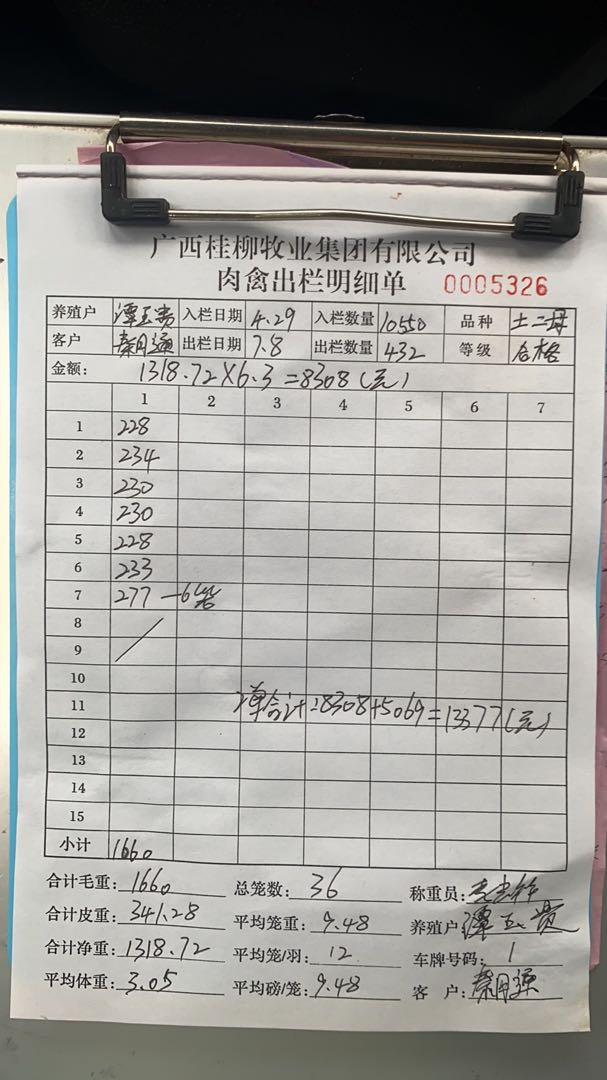 广西桂柳牧业集团有限公司
肉禽出栏明细单 0005326
养殖户 谭玉贵 入栏日期 4.29 入栏数量 10550 品种 土二母
客户 秦用通 出栏日期 7.8 出栏数量 432 等级 合格
金额: 1318.72×6.3=8308(元)
1 2 3 4 5 6 7
1 228
2 234
3 230
4 230
5 228
6 233
7 277 —6笼
8
9
10
11 2单合计=8308+5069=13377(元)
12
13
14
15
小计 1660
合计毛重: 1660 总笼数: 36 称重员:
合计皮重: 341.28 平均笼重: 9.48 养殖户 谭玉贵
合计净重: 1318.72 平均笼/羽: 12 车牌号码: 1
平均体重: 3.05 平均磅/笼: 9.48 客 户: 秦用通